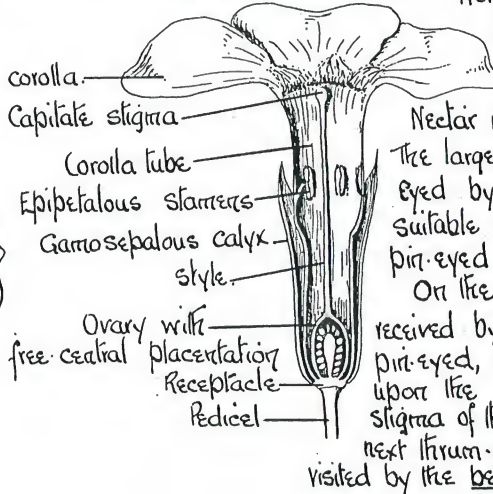 corolla
Capitate stigma
Corolla tube
Epipetalous stamens
Gamosepalous calyx
style
Ovary with
free-central placentation
Receptacle
Pedicel
Nectar
The large
eyed by
suitable
pin-eyed
On the
received by
pin-eyed,
upon the
stigma of th
next thrum-
visited by the be